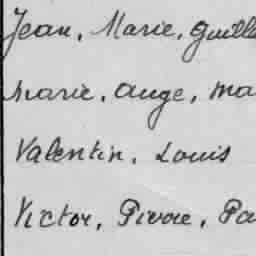 Jean, Marie, Guill
Marie, Ange, Ma
Valentin, Louis
Victor, Pierre, Pa